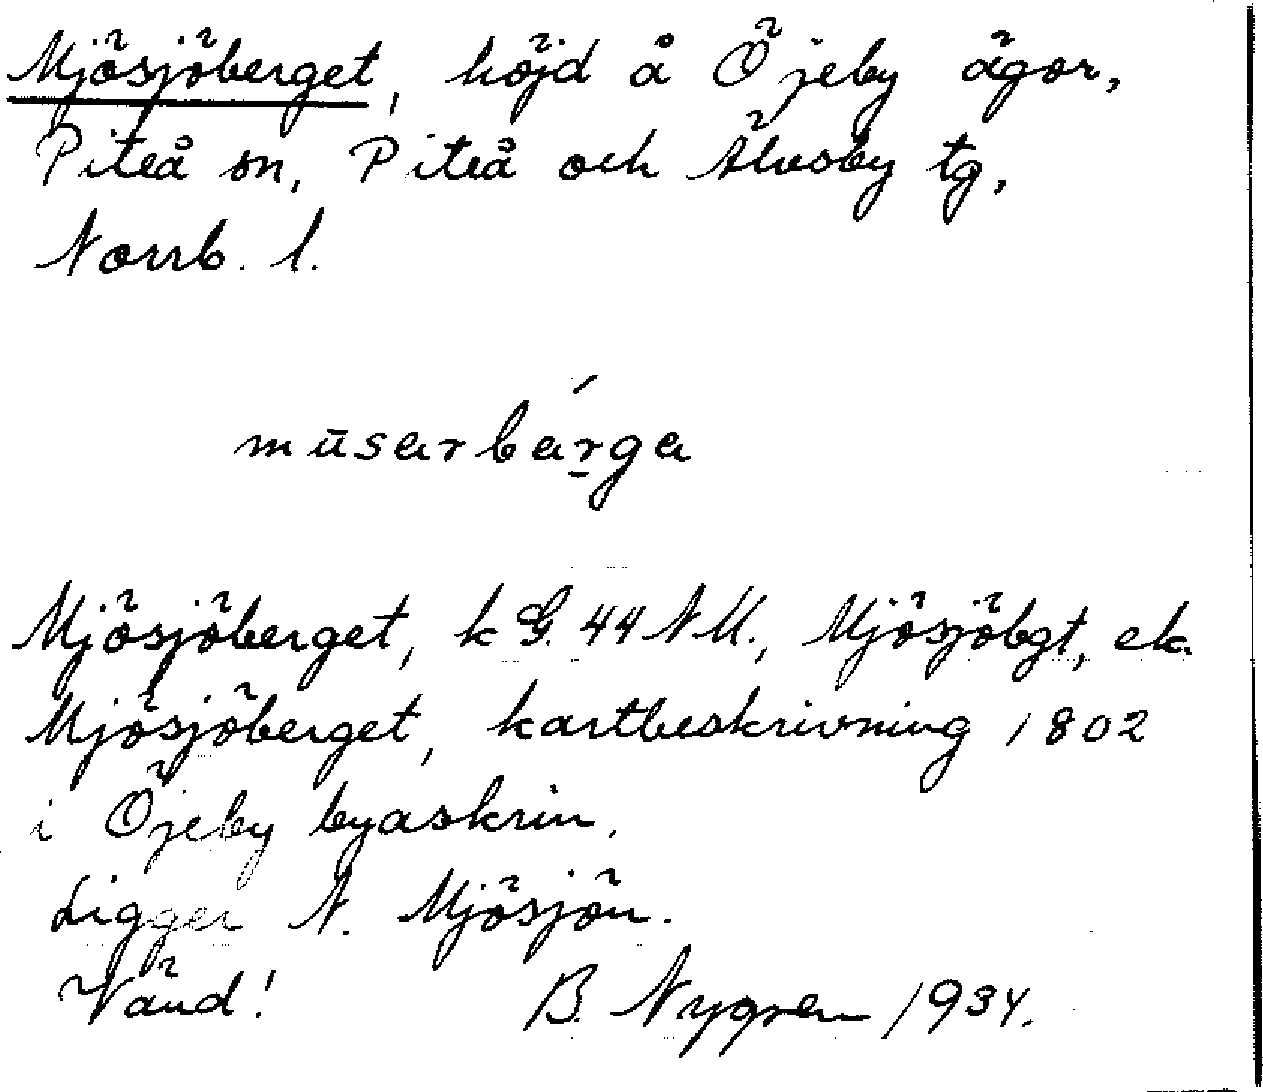 Mjösjöberget, höjd å Öjeby ägor,
Piteå sn, Piteå och Älvsby tg,
Norrb. l.
mūsarbárga
Mjösjöberget, k G. 44 NU., Mjösjöbgt, ek.
Mjösjöberget, kartbeskrivning 1802
i Öjeby byaskrin.
Ligger N. Mjösjön.
Vänd! B. Nygren 1934.